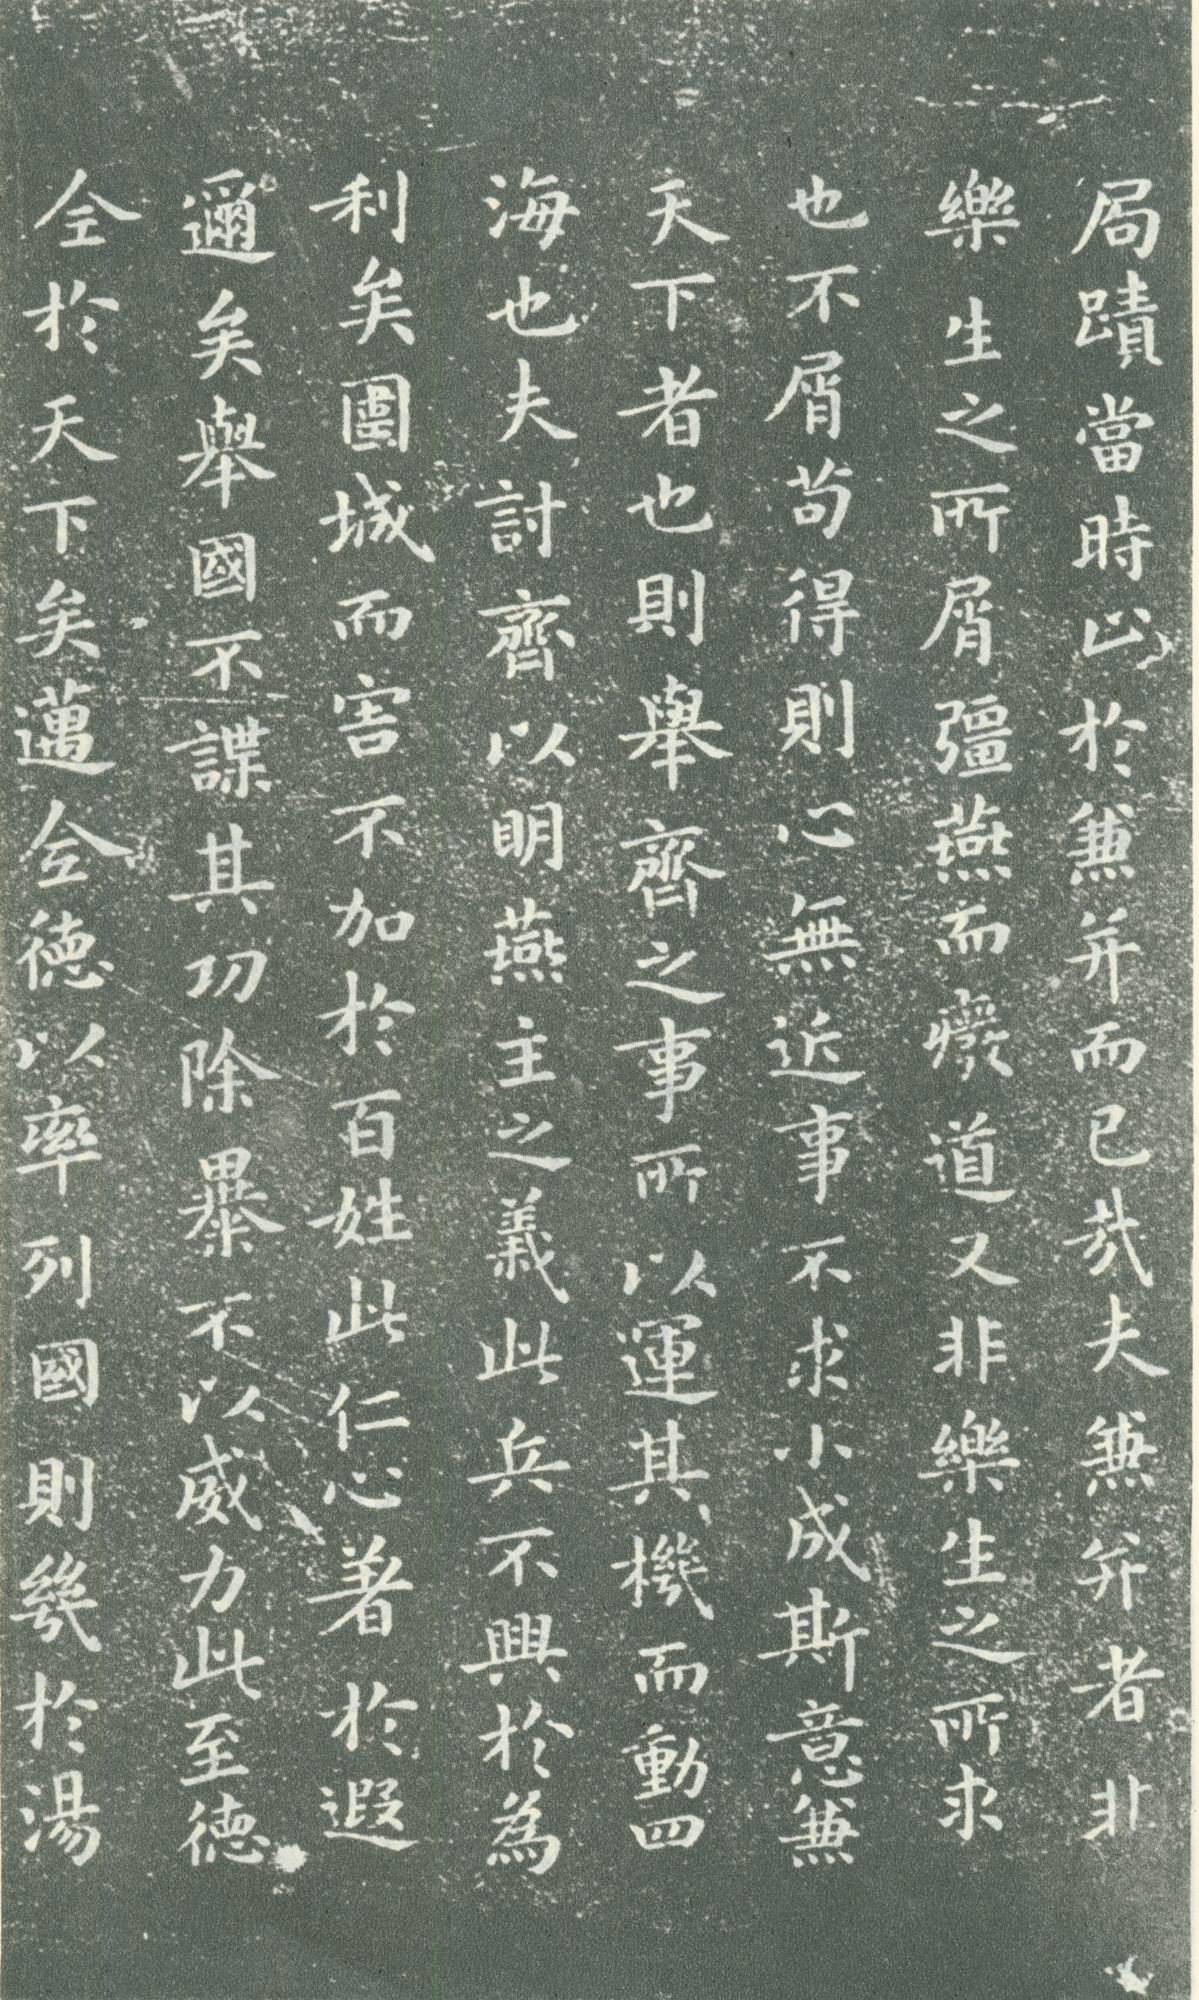 局蹟當時止於兼并而已哉夫兼并者非
樂生之所屑彊燕而癈道又非樂生之所求
也不屑苟得則心無近事不求小成斯意兼
天下者也則舉齊之事所以運其機而動四
海也夫討齊以明燕主之義此兵不興於為
利矣圍城而害不加於百姓此仁心著於遐
邇矣舉國不謀其功除暴不以威力此至德
全於天下矣邁全德以率列國則幾於湯